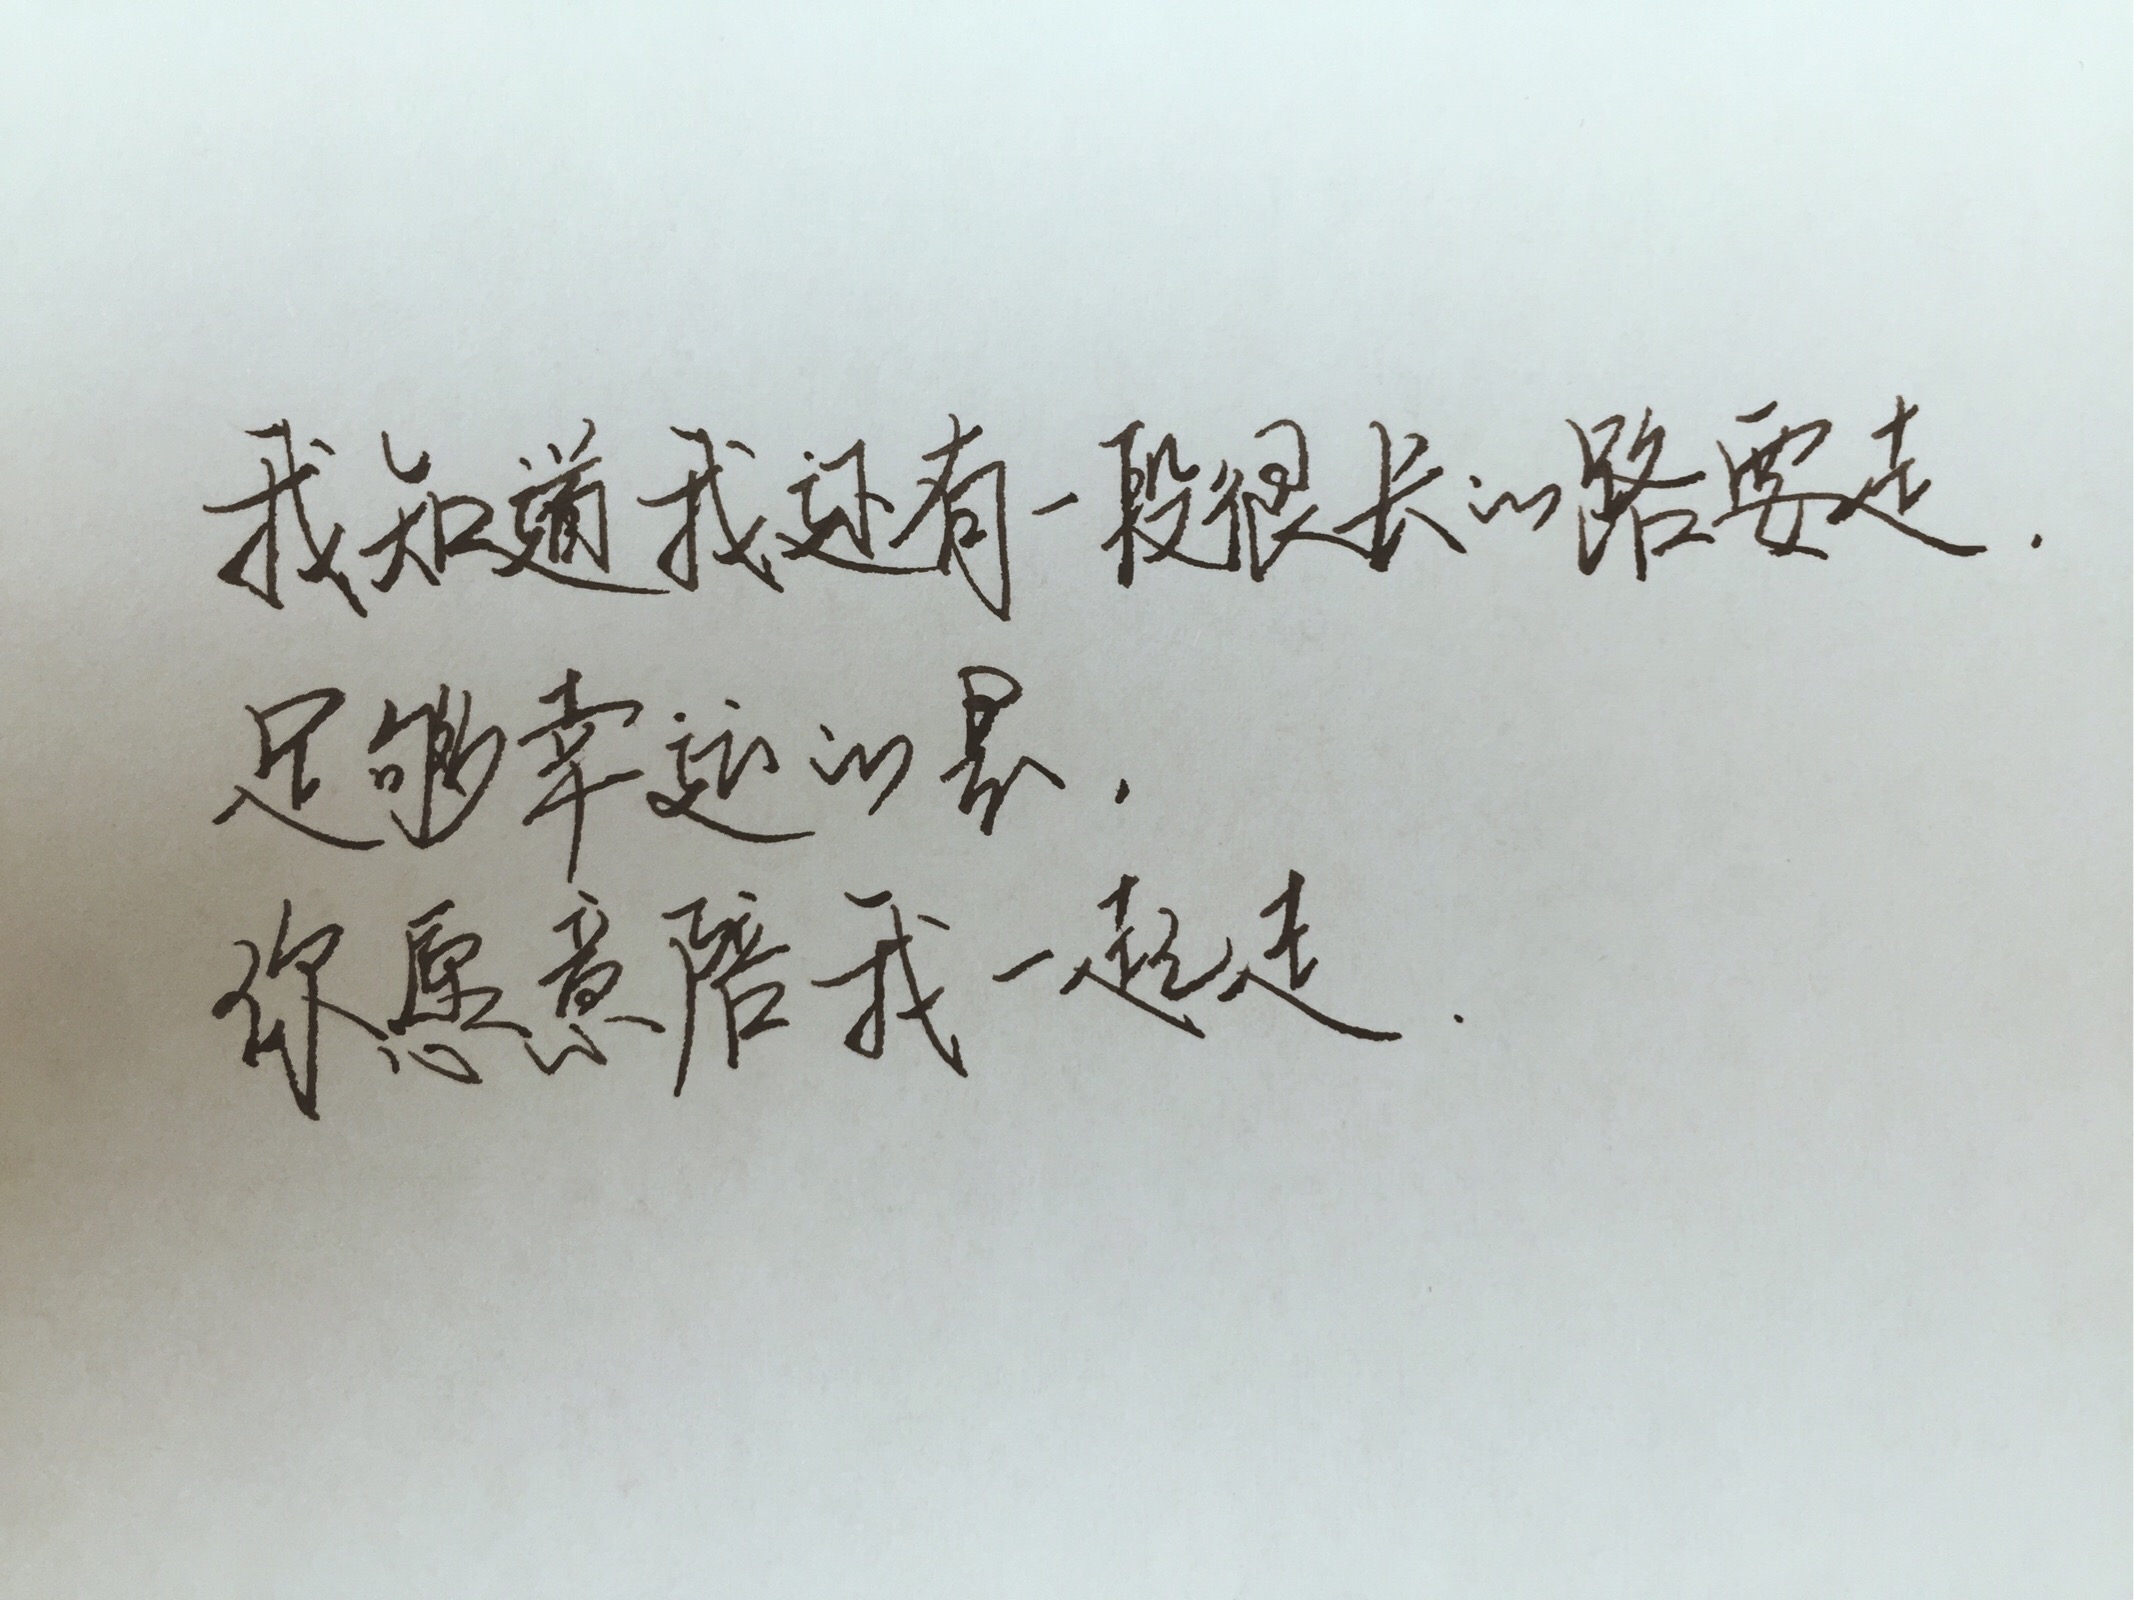 我知道我还有一段很长的路要走.
足够幸运的是.
你愿意陪我一起走.